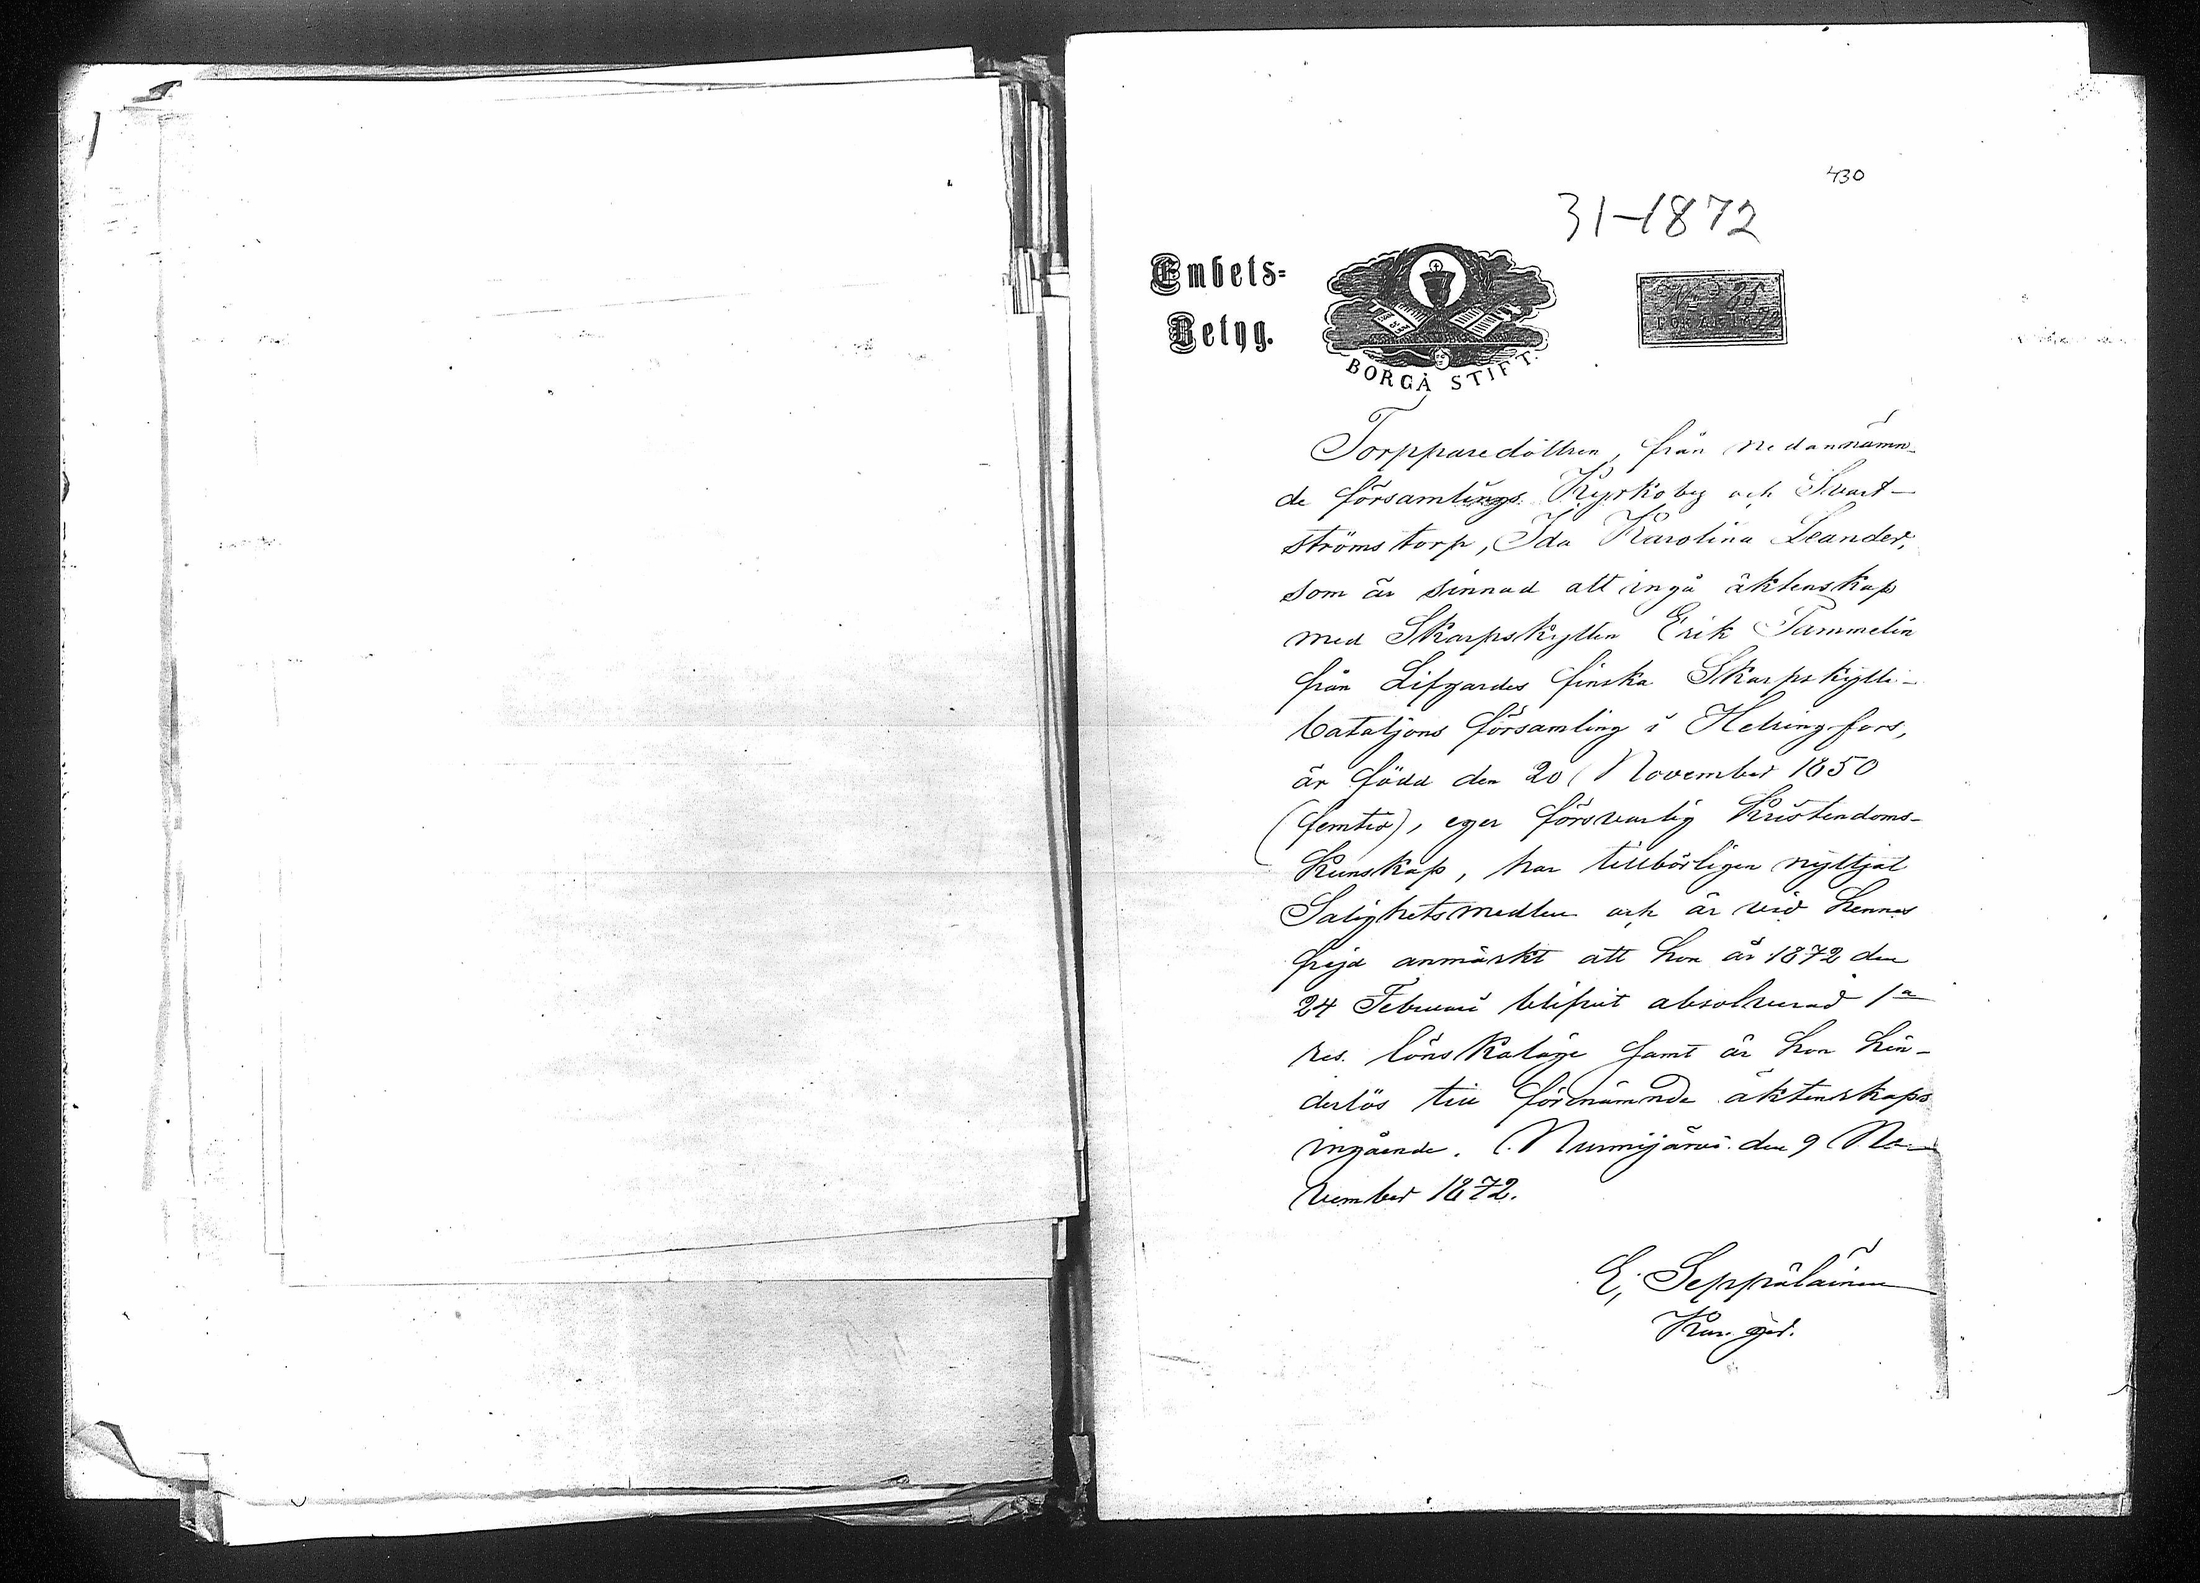 430
31-1872
Embets-
Betyg.
BORGÅ STIFT.
Torpparedottren, från nedannämn-
de församlings Kyrkoby och Svart-
ströms torp, Ida Karolina Leander,
som är sinnad att ingå äktenskap
med Skarpskytten Erik Tammelin
från Lifgardes finska Skarpskytte-
bataljons församling i Helsingfors,
är född den 20 November 1850
(femtio), eger försvarlig Kristendoms-
kunskap, har tillbörligen nyttjat
Salighetsmedlen och är vid hennes
frejd anmärkt att hon år 1872 den
24 Februari blifvit absolverad 1a
res. lönskaläge samt är hon hin-
derlös till förenämnde äktenskaps
ingående. Nurmijärvi den 9 No-
vember 1872.
E, Seppäläinen